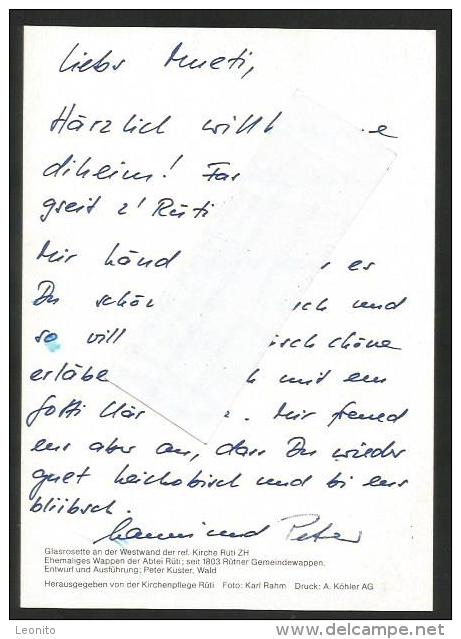 Liebs Mueti,
Härzlich will e
diheim! Fas
gseit z' Rüti
Mir händ r es
Du schön ich und
so vill isch chöne
erläbe mit em
Gotti . Mir freued
eus aber au, dass Du wieder
guet heichobisch und bi eus
bliibsch.
und Peter
Glasrosette an der Westwand der ref. Kirche Rüti ZH
Ehemaliges Wappen der Abtei Rüti; seit 1803 Rütner Gemeindewappen.
Entwurf und Ausführung; Peter Kuster, Wald
Herausgegeben von der Kirchenpflege Rüti Foto: Karl Rahm Druck: A. Köhler AG
Leonito
delcampe.net